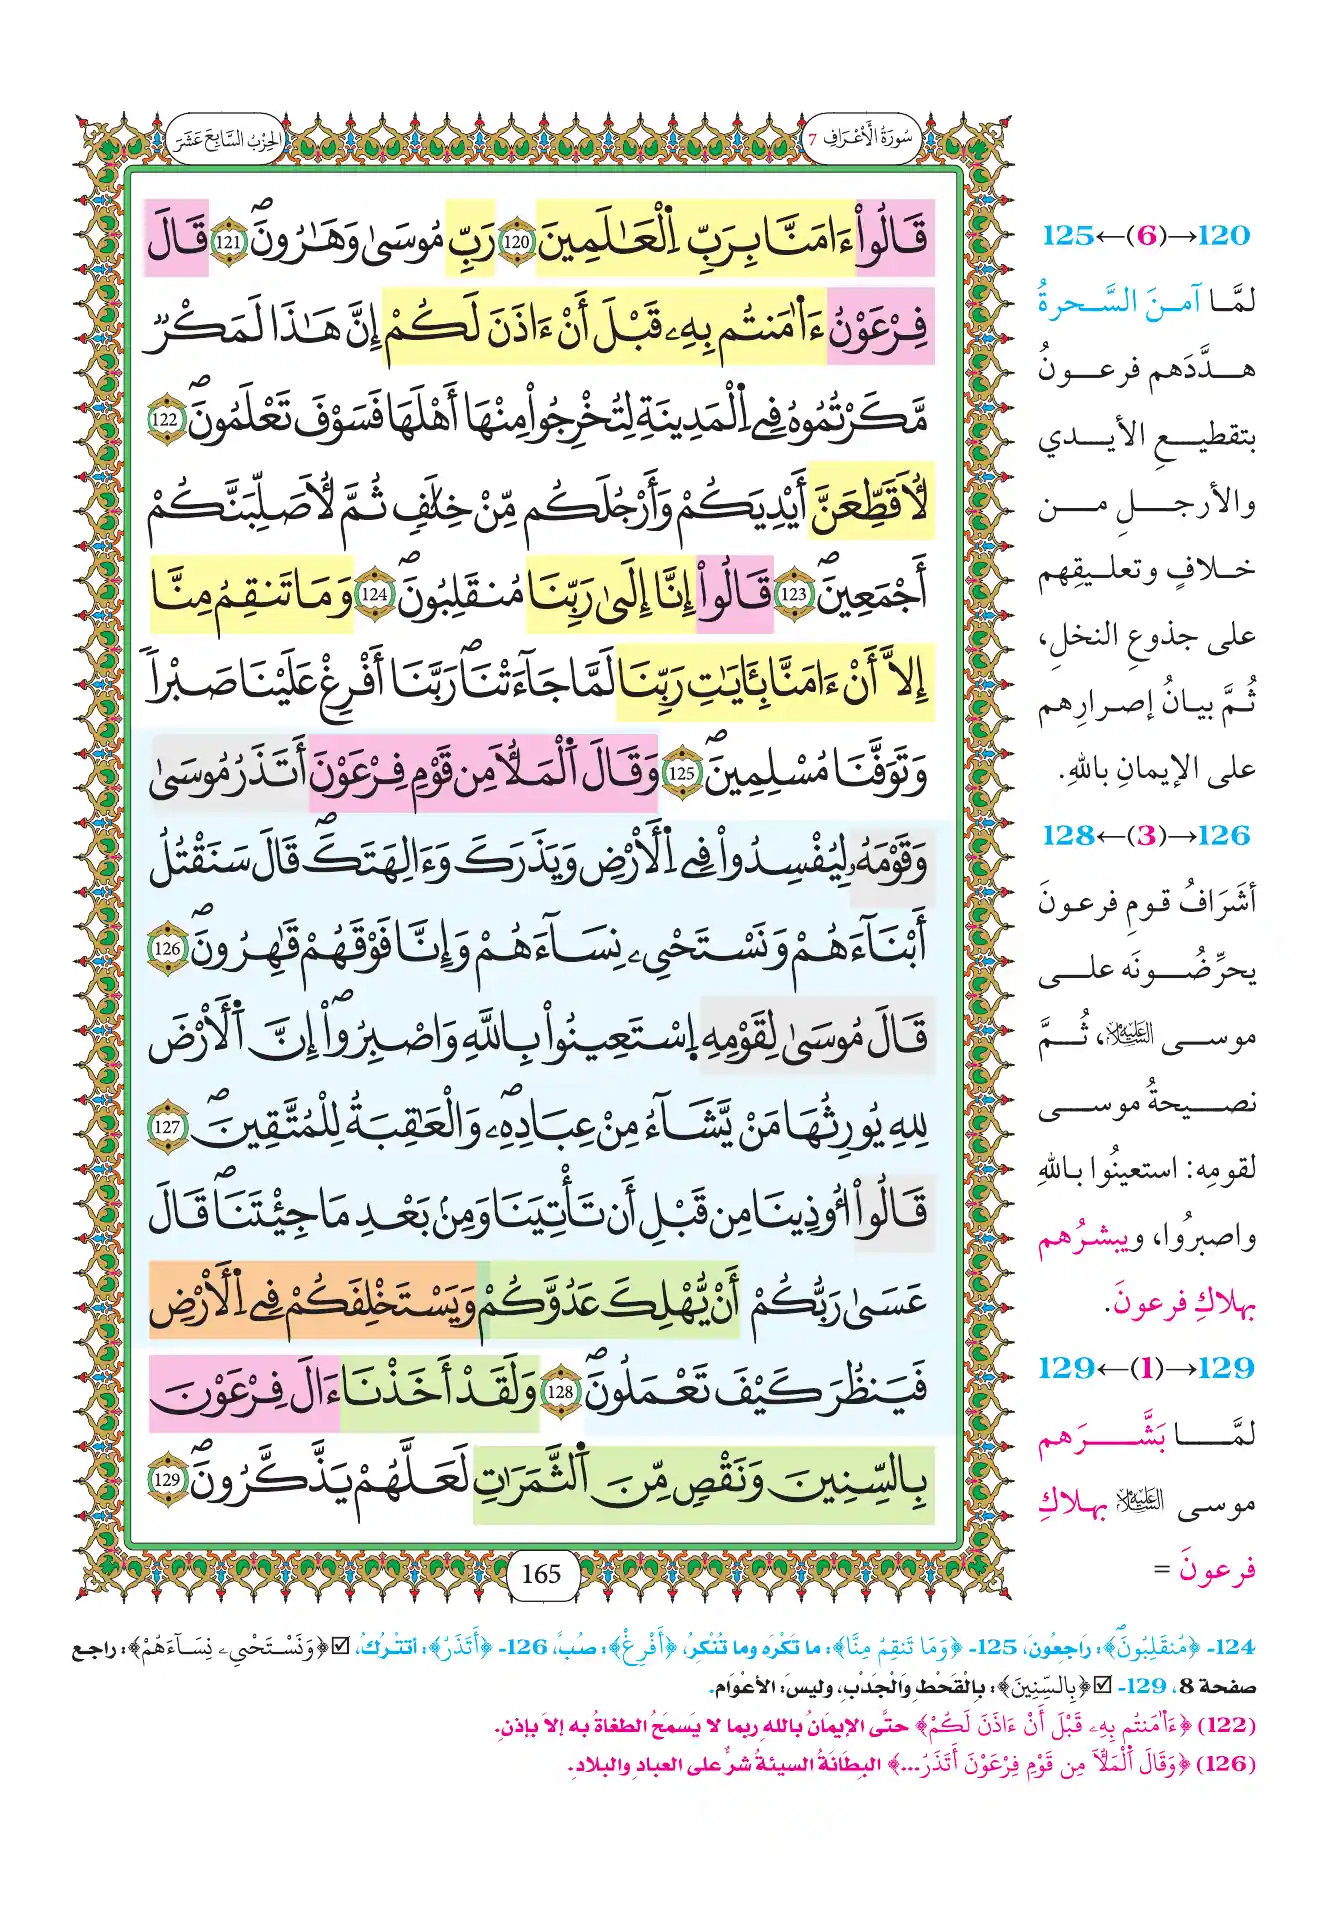 سُورَةُ الْأَعْرَافِ 7
الحِزْبُ السَّابِعَ عَشَرَ
قَالُواْ ءَامَنَّا بِرَبِّ اِ۬لْعَٰلَمِينَ 120 رَبِّ مُوسَىٰ وَهَٰرُونَۖ 121 قَالَ
فِرْعَوْنُ ءَا۬مَنتُم بِهِۦ قَبْلَ أَنْ ءَاذَنَ لَكُمْ إِنَّ هَٰذَا لَمَكْرٌ
مَّكَرْتُمُوهُ فِے اِ۬لْمَدِينَةِ لِتُخْرِجُواْ مِنْهَا أَهْلَهَا فَسَوْفَ تَعْلَمُونَۖ 122
لَأُقَطِّعَنَّ أَيْدِيَكُمْ وَأَرْجُلَكُم مِّنْ خِلَٰفٍ ثُمَّ لَأُصَلِّبَنَّكُمْ
أَجْمَعِينَۖ 123 قَالُواْ إِنَّا إِلَىٰ رَبِّنَا مُنقَلِبُونَۖ 124 وَمَا تَنقِمُ مِنَّا
إِلَّا أَنْ ءَامَنَّا بِـَٔايَٰتِ رَبِّنَا لَمَّا جَآءَتْنَاۖ رَبَّنَا أَفْرِغْ عَلَيْنَا صَبْراٗ
وَتَوَفَّنَا مُسْلِمِينَۖ 125 وَقَالَ اَ۬لْمَلَأُ مِن قَوْمِ فِرْعَوْنَ أَتَذَرُ مُوسَىٰ
وَقَوْمَهُۥ لِيُفْسِدُواْ فِے اِ۬لْأَرْضِ وَيَذَرَكَ وَءَالِهَتَكَۖ قَالَ سَنَقْتُلُ
أَبْنَآءَهُمْ وَنَسْتَحْيِۦ نِسَآءَهُمْ وَإِنَّا فَوْقَهُمْ قَٰهِرُونَۖ 126
قَالَ مُوسَىٰ لِقَوْمِهِ اِ۪سْتَعِينُواْ بِاللَّهِ وَاصْبِرُواْۖ إِنَّ اَ۬لْأَرْضَ
لِلهِ يُورِثُهَا مَنْ يَّشَآءُ مِنْ عِبَادِهِۦۖ وَالْعَٰقِبَةُ لِلْمُتَّقِينَۖ 127
قَالُواْ أُوذِينَا مِن قَبْلِ أَن تَأْتِيَنَا وَمِنۢ بَعْدِ مَا جِئْتَنَاۖ قَالَ
عَسَىٰ رَبُّكُمْ أَنْ يُّهْلِكَ عَدُوَّكُمْ وَيَسْتَخْلِفَكُمْ فِے اِ۬لْأَرْضِ
فَيَنظُرَ كَيْفَ تَعْمَلُونَۖ 128 وَلَقَدْ أَخَذْنَا ءَالَ فِرْعَوْنَ
بِالسِّنِينَ وَنَقْصٍ مِّنَ اَ۬لثَّمَرَٰتِ لَعَلَّهُمْ يَذَّكَّرُونَۖ 129
165
120→(6)←125
لمَّا آمنَ السَّحرةُ
هدَّدَهم فرعونُ
بتقطيعِ الأيدي
والأرجلِ من
خلافٍ وتعليقِهم
على جذوعِ النخلِ،
ثُمَّ بيانُ إصرارِهم
على الإيمانِ باللهِ.
126→(3)←128
أشرَافُ قومِ فرعونَ
يحرِّضُونَه على
موسى عليه السلام، ثُمَّ
نصيحةُ موسى
لقومِه: استعينُوا باللهِ
واصبرُوا، ويبشرُهم
بهلاكِ فرعونَ.
129→(1)←129
لمَّا بَشَّرَهم
موسى عليه السلام بهلاكِ
فرعونَ =
124- ﴿مُنقَلِبُونَۖ﴾: رَاجِعُونَ، 125- ﴿وَمَا تَنقِمُ مِنَّا﴾: ما تَكْرَه وما تُنْكِرُ، ﴿أَفْرِغْ﴾: صُبَّ، 126- ﴿أَتَذَرُ﴾: أتتْركُ، ☑ ﴿وَنَسْتَحْيِۦ نِسَآءَهُمْ﴾: راجع
صفحة 8، 129- ☑ ﴿بِالسِّنِينَ﴾: بِالْقَحْطِ وَالْجَدْبِ، وليسَ: الأعْوَام.
(122) ﴿ءَا۬مَنتُم بِهِۦ قَبْلَ أَنْ ءَاذَنَ لَكُمْ﴾ حتَّى الإيمَانُ بالله ربما لا يَسمَحُ الطغاةُ به إلا بإذنٍ.
(126) ﴿وَقَالَ اَ۬لْمَلَأُ مِن قَوْمِ فِرْعَوْنَ أَتَذَرُ...﴾ البِطَانَةُ السيئةُ شرٌّ على العبادِ والبلادِ.